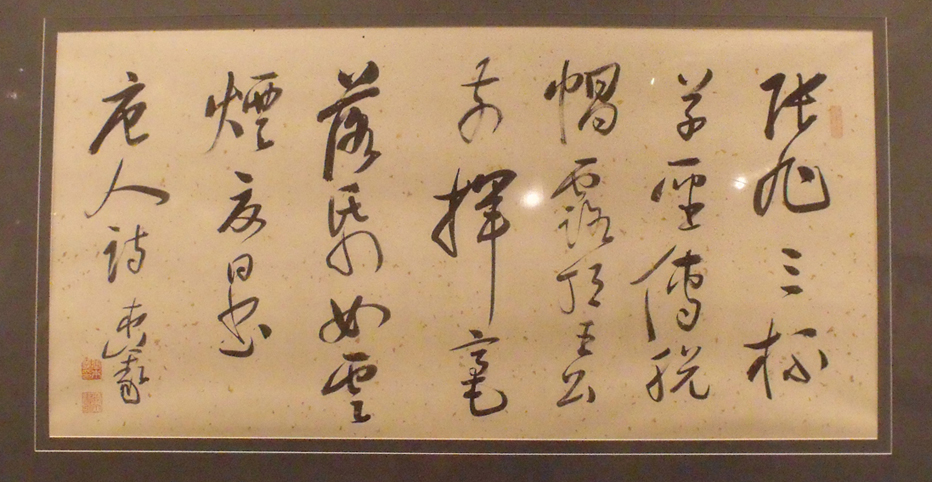 張旭三杯
草聖傳脫
帽露頂王公
前揮毫
落紙如雲
煙 夏日書
唐人詩